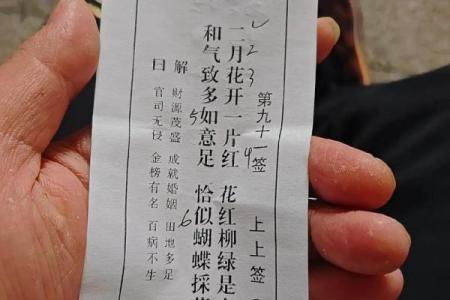 第九十一签 上上签
二月花开一片红 花红柳绿是
和气致多如意足 恰似蝴蝶採
解曰
财源茂盛 成就婚姻 田地多足
官司无侵 金榜有名 百病不生
2
3
5
6